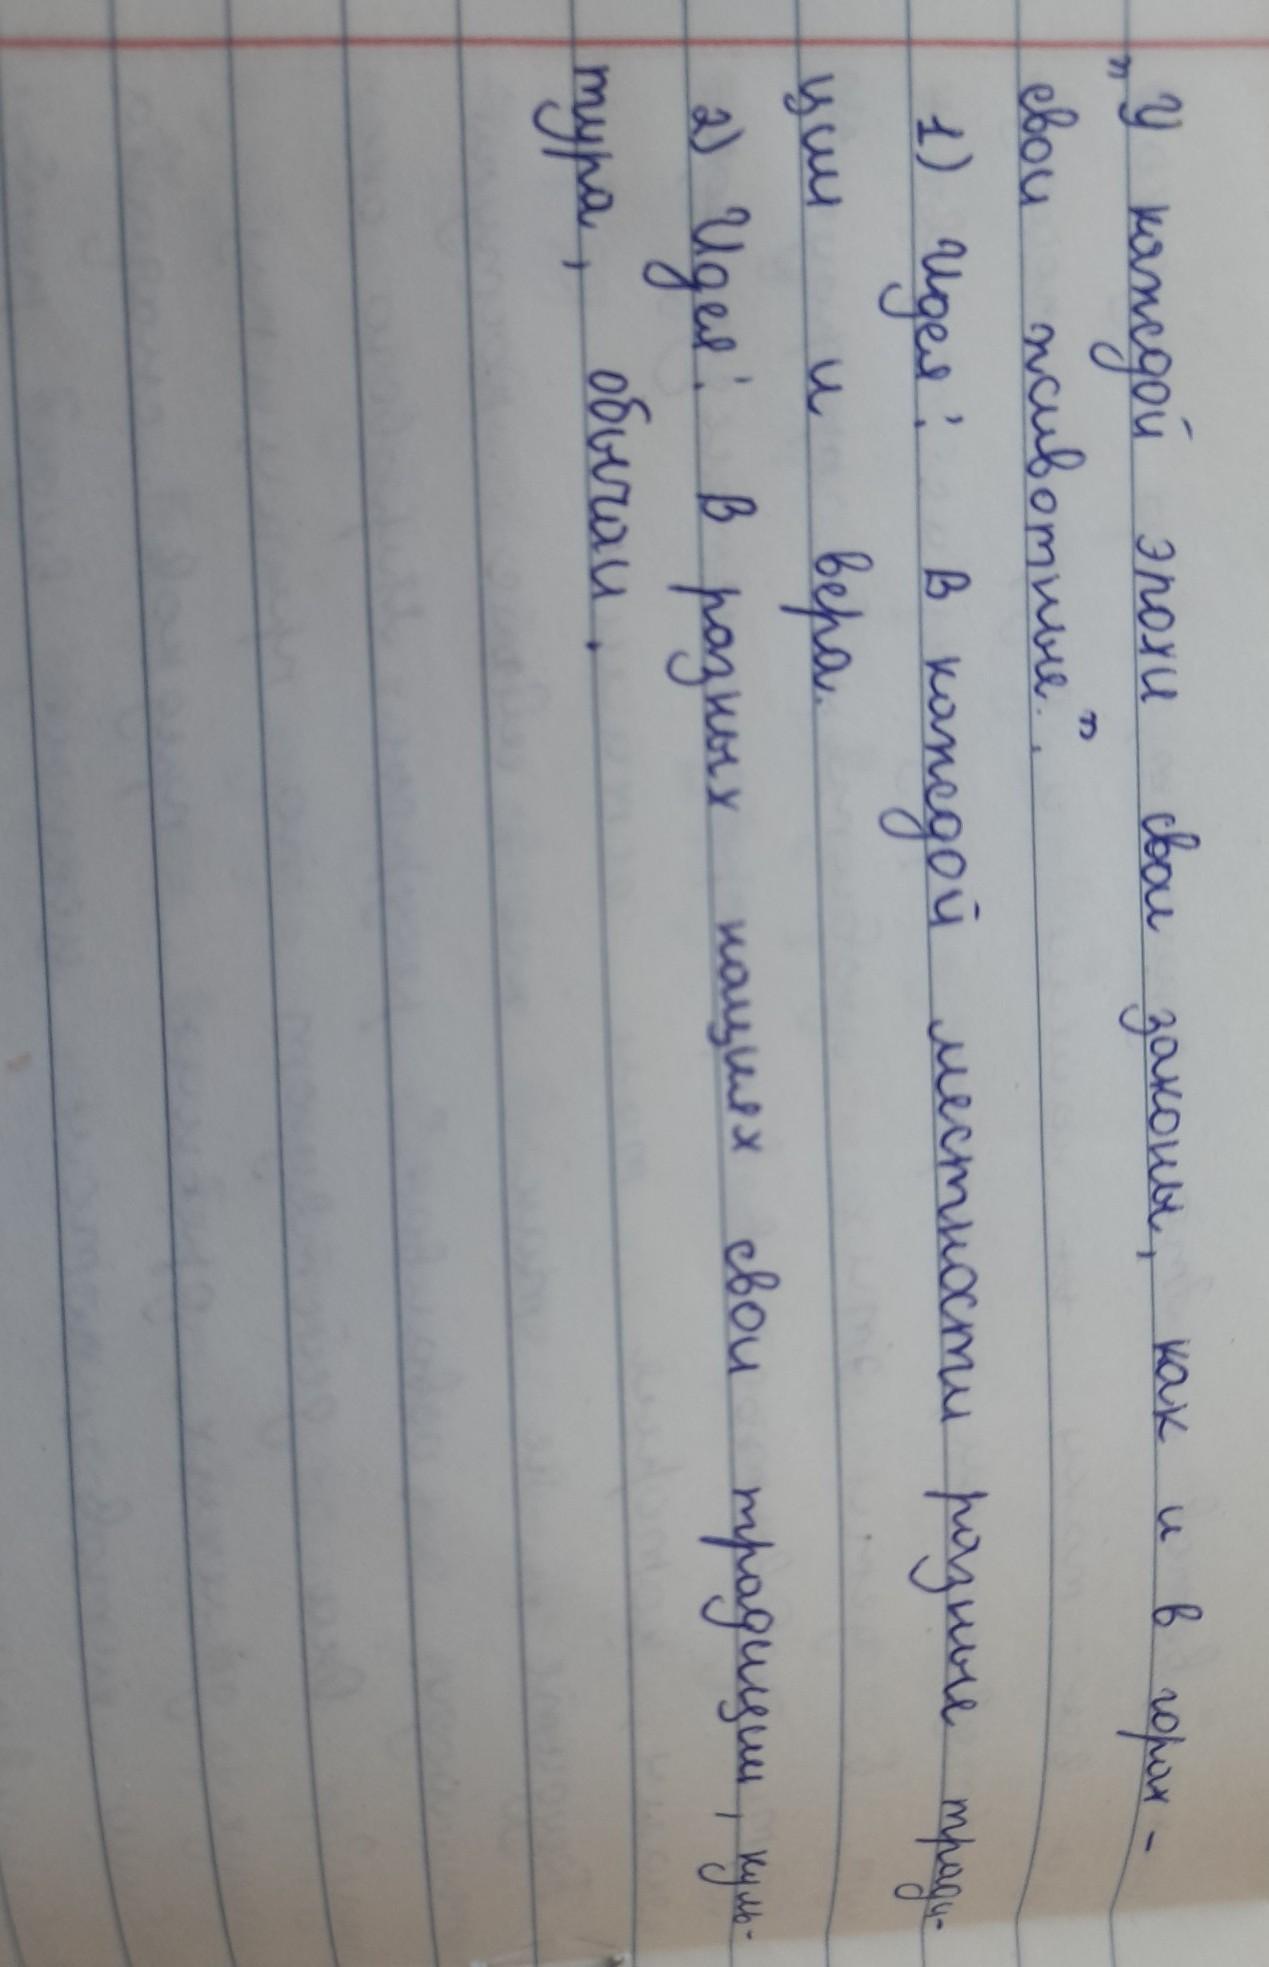 "У каждой эпохи свои законы, как и в горах -
свои животные.".
1) Идея: В каждой местности разные тради-
ции и вера.
2) Идея: В разных нациях свои традиции, куль-
тура, обычаи.